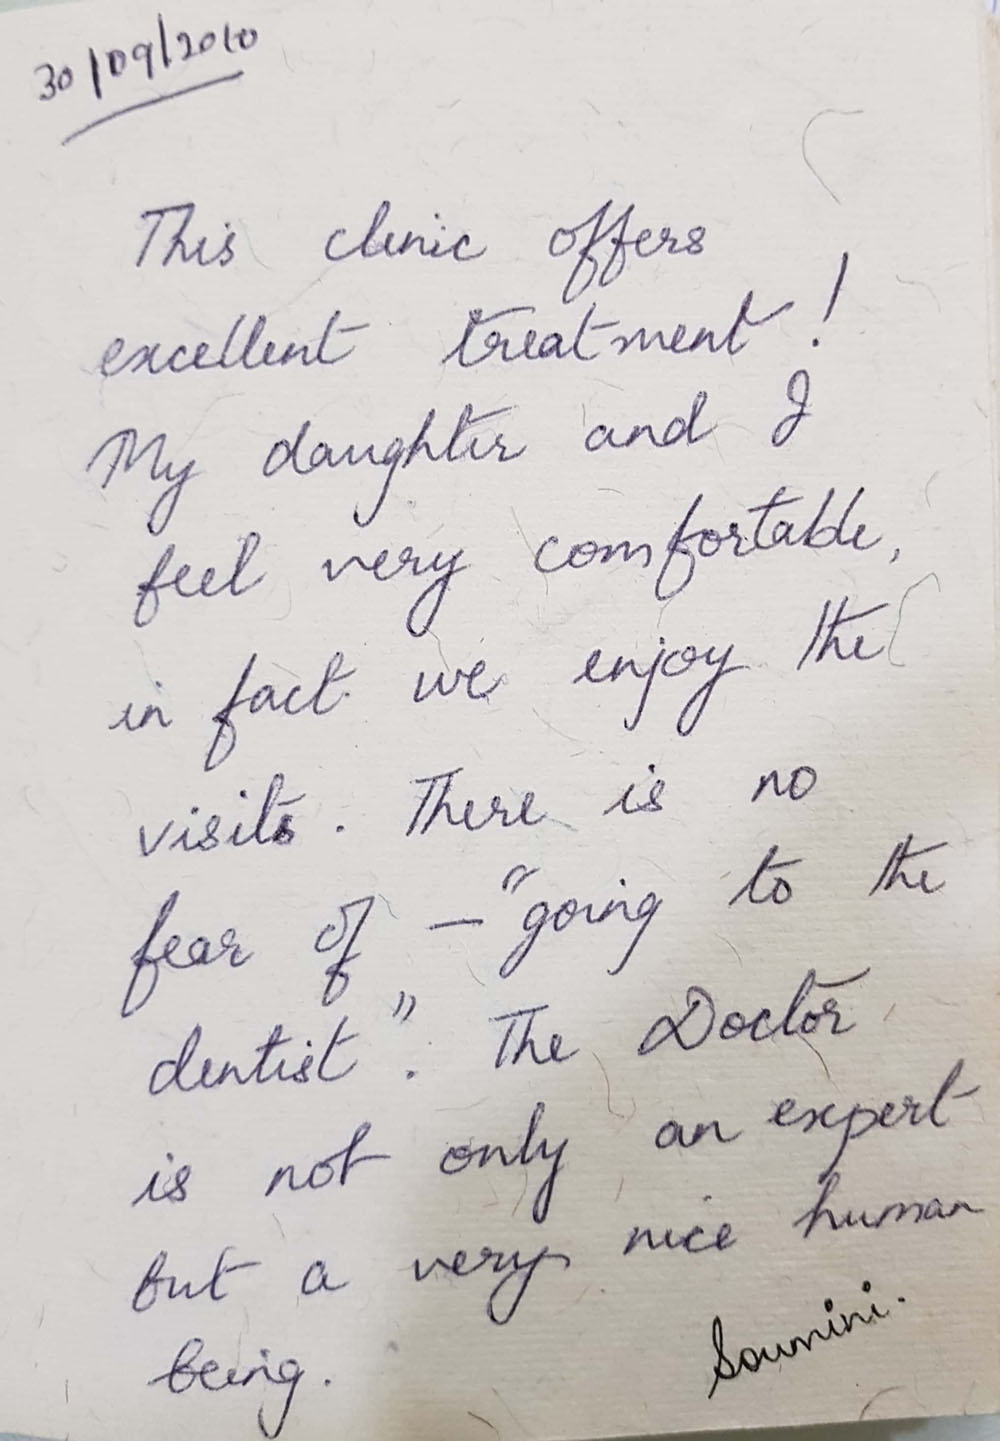 30/09/2010
This clinic offers
excellent treatment!
My daughter and I
feel very comfortable,
in fact we enjoy the
visits. There is no
fear of — "going to the
dentist". The Doctor
is not only an expert
but a very nice human
being.
Soumini.